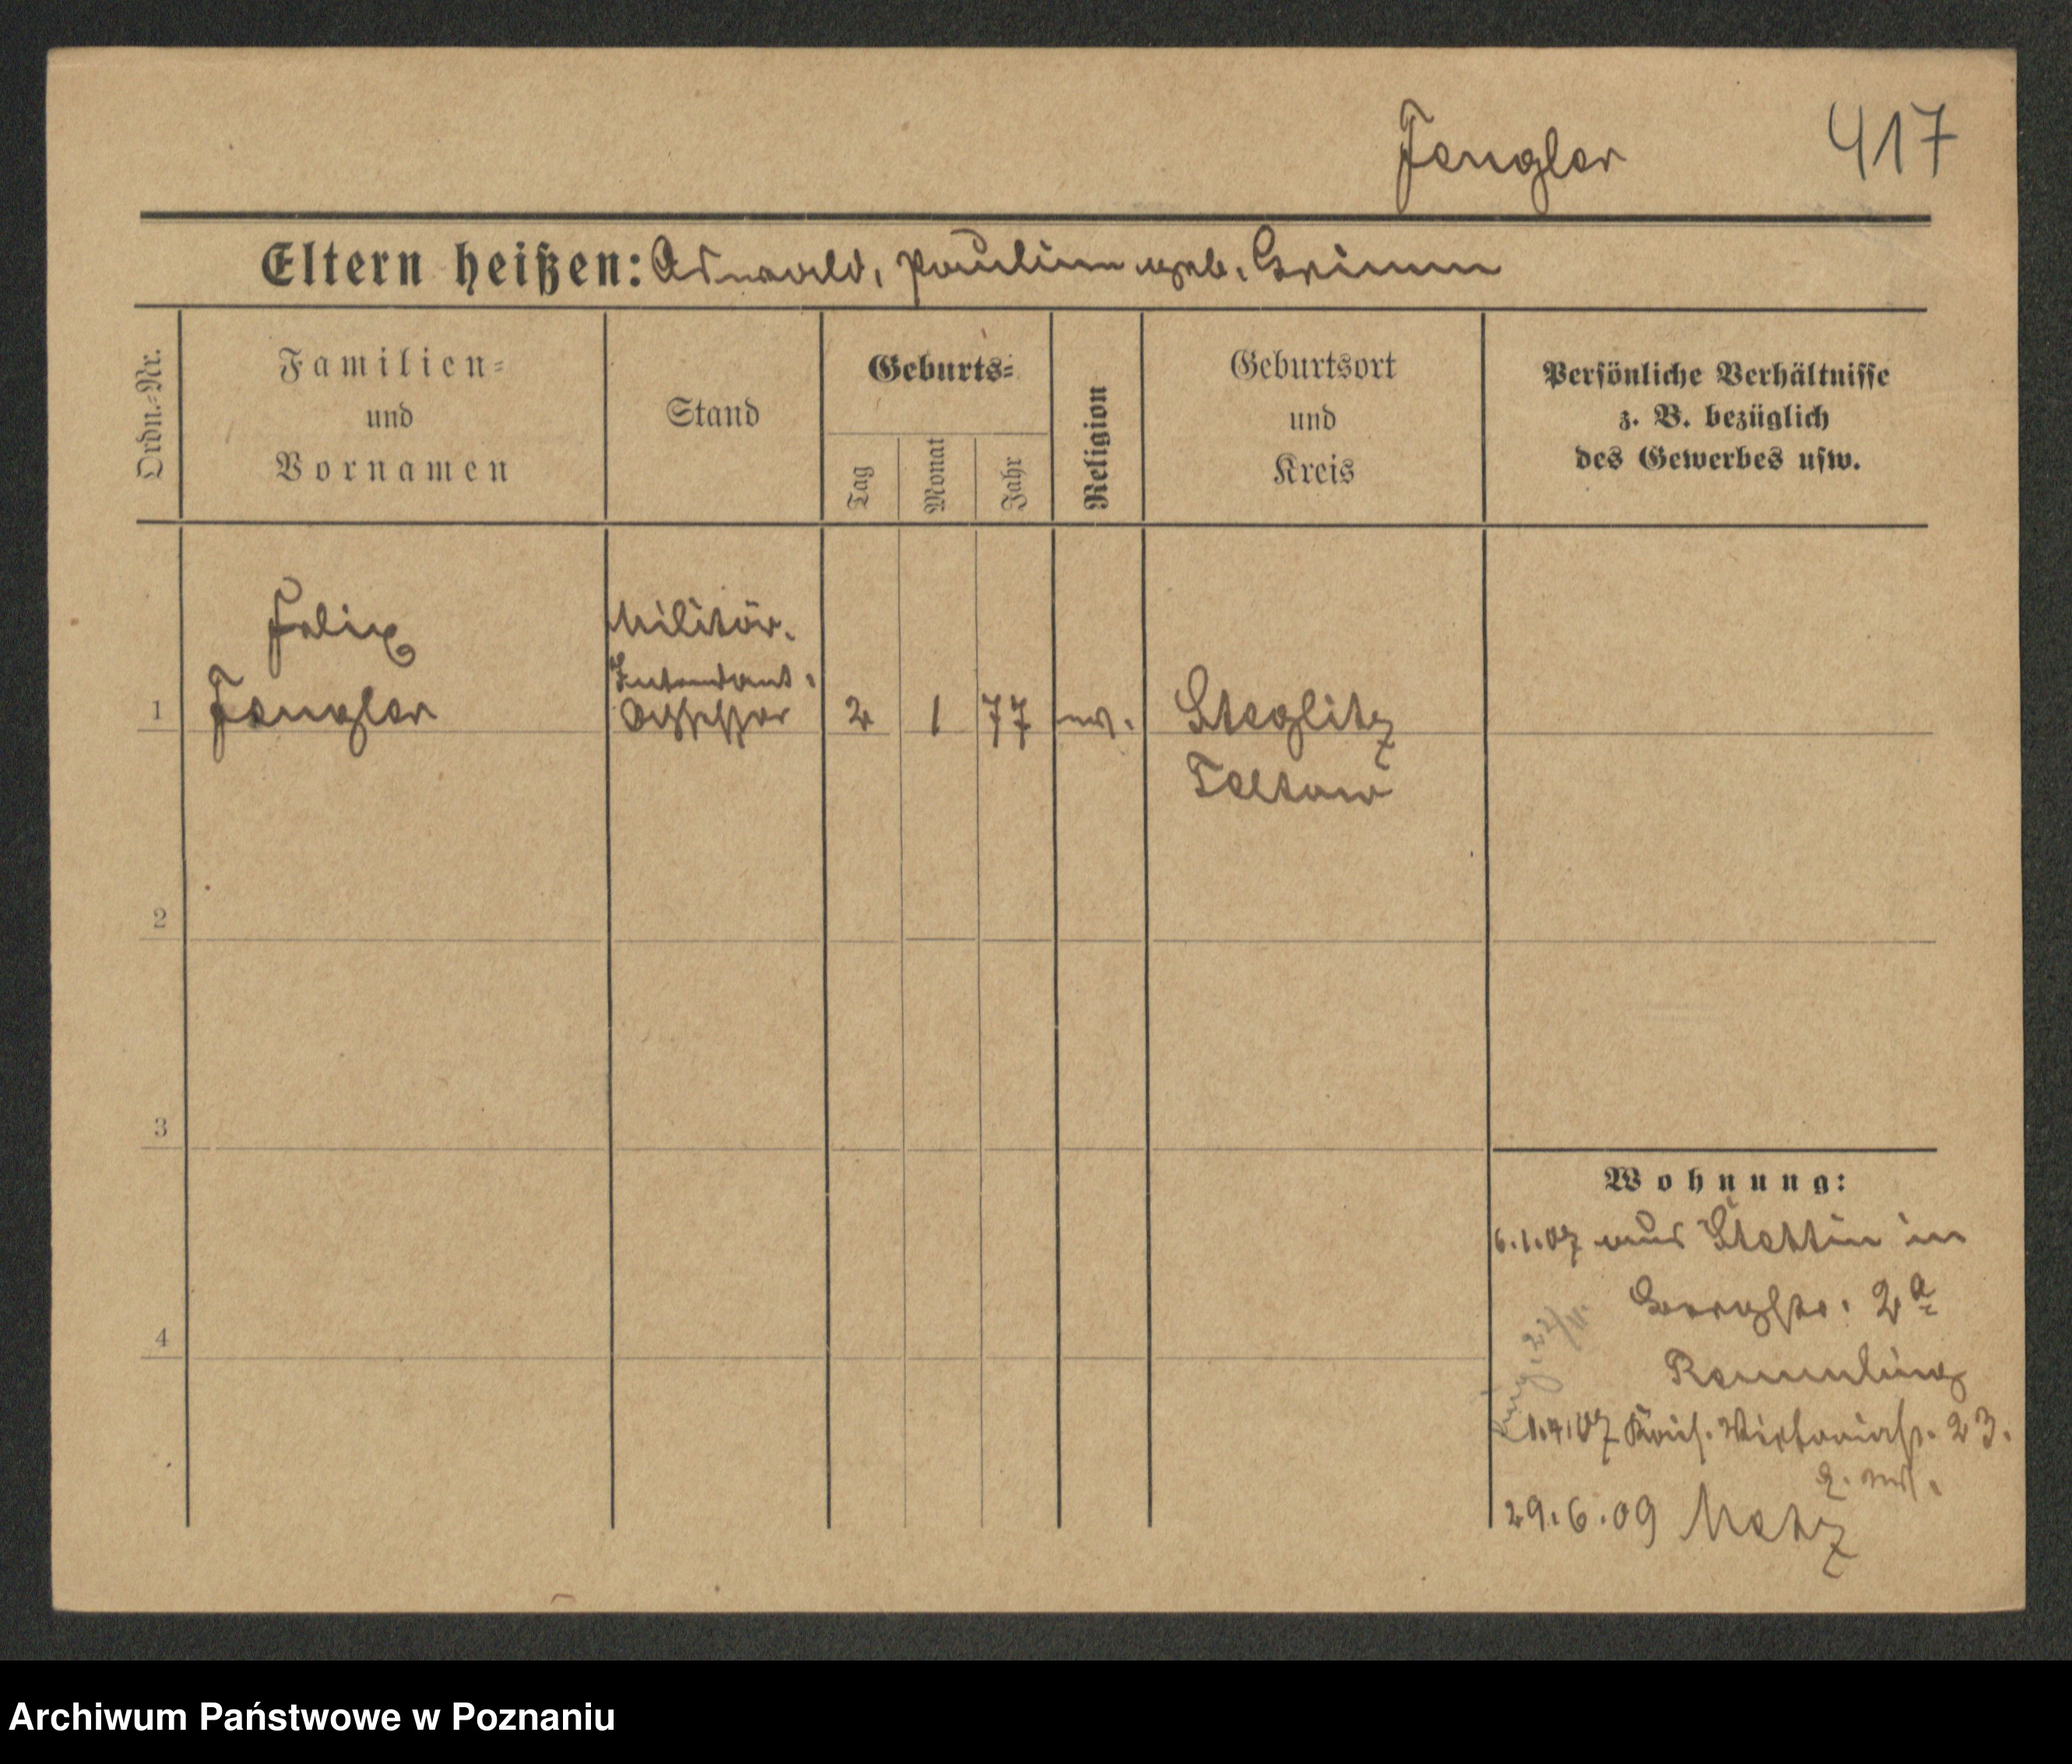 Fengler 417
Eltern heißen: Oswald, Pauline geb. Grimm
Ordn.-Nr.
Familien-
und
Vornamen
Stand
Geburts-
Tag
Monat
Jahr
Religion
Geburtsort
und
Kreis
Persönliche Verhältnisse
z. B. bezüglich
des Gewerbes usw.
Felix
Militär.
Intendant.
1 Fengler Assessor 2 1 77 ev. Steglitz
Teltow
2
3
4
Wohnung:
6.1.07 aus Stettin in
2a
1.4.07 Victoriastr. 23.
29.6.09 Metz
Archiwum Państwowe w Poznaniu